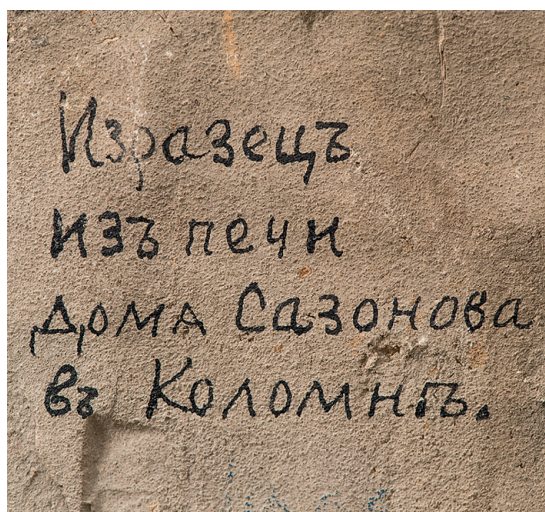 Изразецъ
изъ печи
дома Сазонова
въ Коломнѣ.